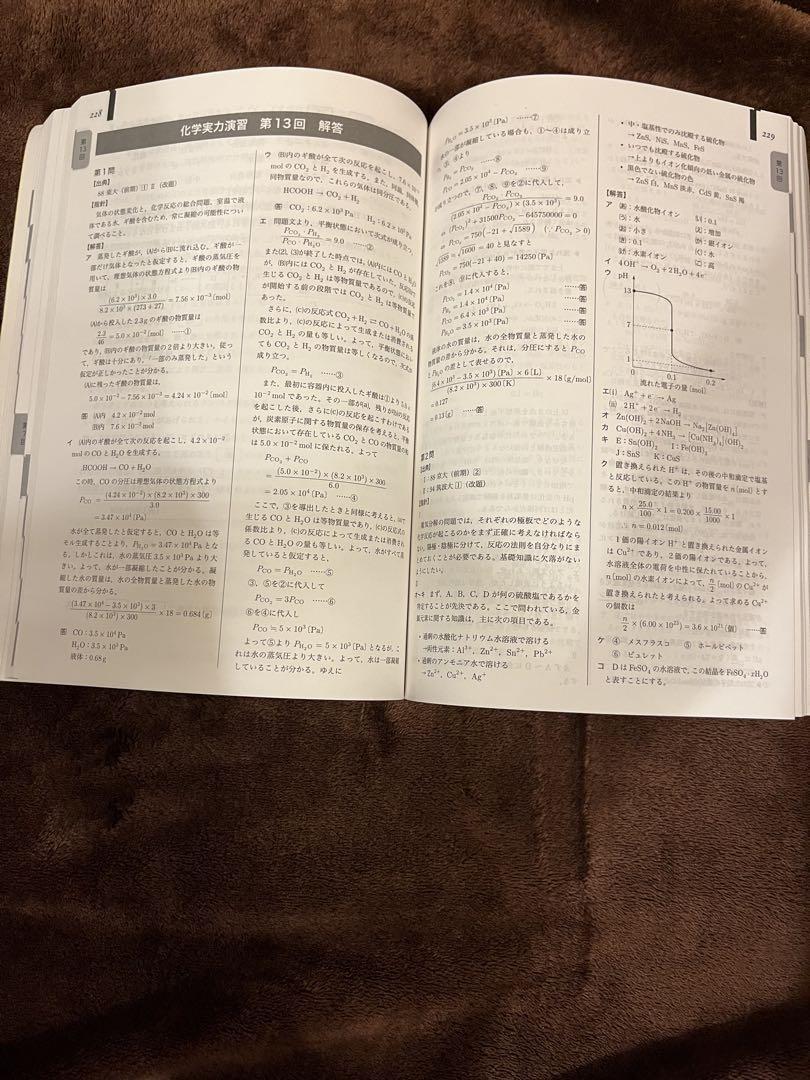 228
第13回
化学実力演習 第13回 解答
第1問
【出典】
88 東大（前期）① Ⅱ（改題）
【指針】
気体の状態変化と、化学反応の総合問題。室温で液
体である水、ギ酸を含むため、常に凝縮の可能性につい
て調べること。
【解答】
ア 蒸発したギ酸が、(A)から(B)に流れ込む。ギ酸が一
部だけ気体となったと仮定すると、ギ酸の蒸気圧を
用いて、理想気体の状態方程式より(B)内のギ酸の物
質量は
(6.2×10³)×3.0/8.2×10³×(273+27)=7.56×10⁻³(mol)
(A)から投入した2.3gのギ酸の物質量は
2.3/46=5.0×10⁻²(mol) ……①
であり、(B)内のギ酸の物質量の2倍より大きい。従っ
て、ギ酸は十分にあり、「一部のみ蒸発した」という
仮定が正しかったことが分かる。
(A)に残ったギ酸の物質量は、
5.0×10⁻²−7.56×10⁻³=4.24×10⁻²(mol)
答 (A)内 4.2×10⁻²mol
(B)内 7.6×10⁻³mol
イ (A)内のギ酸が全て次の反応を起こし、4.2×10⁻²
molのCOとH₂Oを生成する。
HCOOH→CO+H₂O
この時、COの分圧は理想気体の状態方程式より
P_CO=(4.24×10⁻²)×(8.2×10³)×300/3.0
=3.47×10⁴(Pa)
水が全て蒸発したと仮定すると、COとH₂Oは等
モル生成することより、P_H₂O=3.47×10⁴Paとな
る。しかしこれは、水の蒸気圧3.5×10³Paより大
きい。よって、水が一部凝縮したことが分かる。凝
縮した水の質量は、水の全物質量と蒸発した水の物
質量の差から分かる。
(3.47×10⁴−3.5×10³)×3/(8.2×10³)×300×18=0.684(g)
答 CO：3.5×10⁴Pa
H₂O：3.5×10³Pa
液体：0.68g
ウ (B)内のギ酸が全て次の反応を起こし、7.6×10⁻³
molのCO₂とH₂を生成する。また、同温、同体積、
同物質量なので、これらの気体は同分圧である。
HCOOH→CO₂+H₂
答 CO₂：6.2×10³Pa H₂：6.2×10³Pa
エ 問題文より、平衡状態において次式が成り立つ。
P_CO₂・P_H₂/P_CO・P_H₂O=9.0 ……②
また(2)、(3)が終了した時点では、(A)内にはCOとH₂O
が、(B)内にはCO₂とH₂が存在していた。反応(b)で
生じるCO₂とH₂は等物質量であるので、(c)の反応
が開始する前の段階ではCO₂とH₂は等物質量で
あった。
さらに、(c)の反応式CO₂+H₂⇄CO+H₂Oの係
数比より、(c)の反応によって生成または消費される
CO₂とH₂の量も等しい。よって、平衡状態におい
てもCO₂とH₂の物質量は等しくなるので、次式が
成り立つ。
P_CO₂=P_H₂ ……③
また、最初に容器内に投入したギ酸は①より5.0×
10⁻²molであった。その一部が(a)、残りが(b)の反応
を起こした後、さらに(c)の反応を起こすわけである
が、炭素原子に関する物質量の保存を考えると、平衡
状態において存在しているCO₂とCOの物質量の和
は5.0×10⁻²molに保たれる。よって
P_CO₂+P_CO
=(5.0×10⁻²)×(8.2×10³)×300/6.0
=2.05×10⁴(Pa) ……④
ここで、③を導出したときと同様に考えると、(a)で
生じるCOとH₂Oは等物質量であり、(c)の反応式の
係数比より、(c)の反応によって生成または消費され
るCOとH₂Oの量も等しい。よって、水がすべて蒸
発していると仮定すると、
P_CO=P_H₂O ……⑤
③、⑤を②に代入して
P_CO₂=3P_CO ……⑥
⑥を④に代入し
P_CO≒5×10³(Pa)
よって⑤よりP_H₂O=5×10³(Pa)となるが、こ
れは水の蒸気圧より大きい。よって、水は一部凝縮
していることが分かる。ゆえに
P_H₂O=3.5×10³(Pa) ……⑦
水の一部が凝縮している場合も、①〜④は成り立
③、④より
……⑧
P_CO=2.05×10⁴−P_CO₂ ……⑨
が成り立つので、⑦、⑧、⑨を②に代入して、
/(2.05×10⁴−P_CO₂)×(3.5×10³)=9.0
⇔(P_CO₂)²+31500P_CO₂−645750000=0
⇔P_CO₂=750(−21+√1589) (∵P_CO₂>0)
√1589≒√1600=40と見なすと
P_CO₂=750(−21+40)=14250(Pa)
これを⑧、⑨に代入すると、
P_CO₂=1.4×10⁴(Pa) ……答
P_H₂=1.4×10⁴(Pa) ……答
P_CO=6.4×10³(Pa) ……答
P_H₂O=3.5×10³(Pa) ……答
液体の水の質量は、水の全物質量と蒸発した水の
物質量の差から分かる。それは、分圧にするとP_CO
とP_H₂Oの差として表せるので、
(6.4×10³−3.5×10³)(Pa)×6(L)/(8.2×10³)×300(K)×18(g/mol)
≒0.127
≒0.13(g) ……答
第2問
【出典】
Ⅰ：88 東大（前期）②
Ⅱ：94 筑波大①（改題）
【指針】
電気分解の問題では、それぞれの極板でどのような
化学反応が起こるのかをまず正確に考えなければなら
ない。陽極・陰極に分けて、反応の法則を自分なりにま
とめておくことが必要である。基礎知識に欠落がない
ようにしたい。
Ⅱ
オ〜キ まず、A、B、C、Dが何の硫酸塩であるかを
特定することが先決である。ここで問われている、金
属元素に関する知識は、主に次の項目である。
・過剰の水酸化ナトリウム水溶液で溶ける
→両性元素：Al³⁺、Zn²⁺、Sn²⁺、Pb²⁺
・過剰のアンモニア水で溶ける
→Zn²⁺、Cu²⁺、Ag⁺
229
第13回
・中・塩基性でのみ沈殿する硫化物
→ZnS、NiS、MnS、FeS
・いつでも沈殿する硫化物
→上よりもイオン化傾向の低い金属の硫化物
・黒色でない硫化物の色
→ZnS白、MnS淡赤、CdS黄、SnS褐
【解答】
ア (あ)：水酸化イオン (い)：0.1
(う)：水 (え)：増加
(お)：小さ (か)：銀イオン
(き)：0.1 (く)：水
(け)：水素イオン (こ)：高
イ 4OH⁻→O₂+2H₂O+4e⁻
ウ pH
13
7
1
0 0.1 0.2
流れた電子の量(mol)
エ(i) Ag⁺+e⁻→Ag
(ii) 2H⁺+2e⁻→H₂
オ Zn(OH)₂+2NaOH→Na₂[Zn(OH)₄]
カ Cu(OH)₂+4NH₃→[Cu(NH₃)₄](OH)₂
キ E：Sn(OH)₂ I：Fe(OH)₂
J：SnS K：CuS
ク 置き換えられたH⁺は、その後の中和滴定で塩基
と反応している。このH⁺の物質量をn(mol)とす
ると、中和滴定の結果より
n×25.0/100×1=0.200×15.00/1000×1
∴n=0.012(mol)
1価の陽イオンH⁺と置き換えられた金属イオン
はCu²⁺であり、2価の陽イオンである。よって、
水溶液全体の電荷を中性に保たれていることから、
n(mol)の水素イオンによって、n/2(mol)のCu²⁺が
置き換えられたと考えられる。よって求めるCu²⁺
の個数は
n/2×(6.00×10²³)=3.6×10²¹(個) ……答
ケ ④ メスフラスコ ⑤ ホールピペット
⑥ ビュレット
コ DはFeSO₄の水溶液で、この結晶をFeSO₄・xH₂O
と表すことにする。